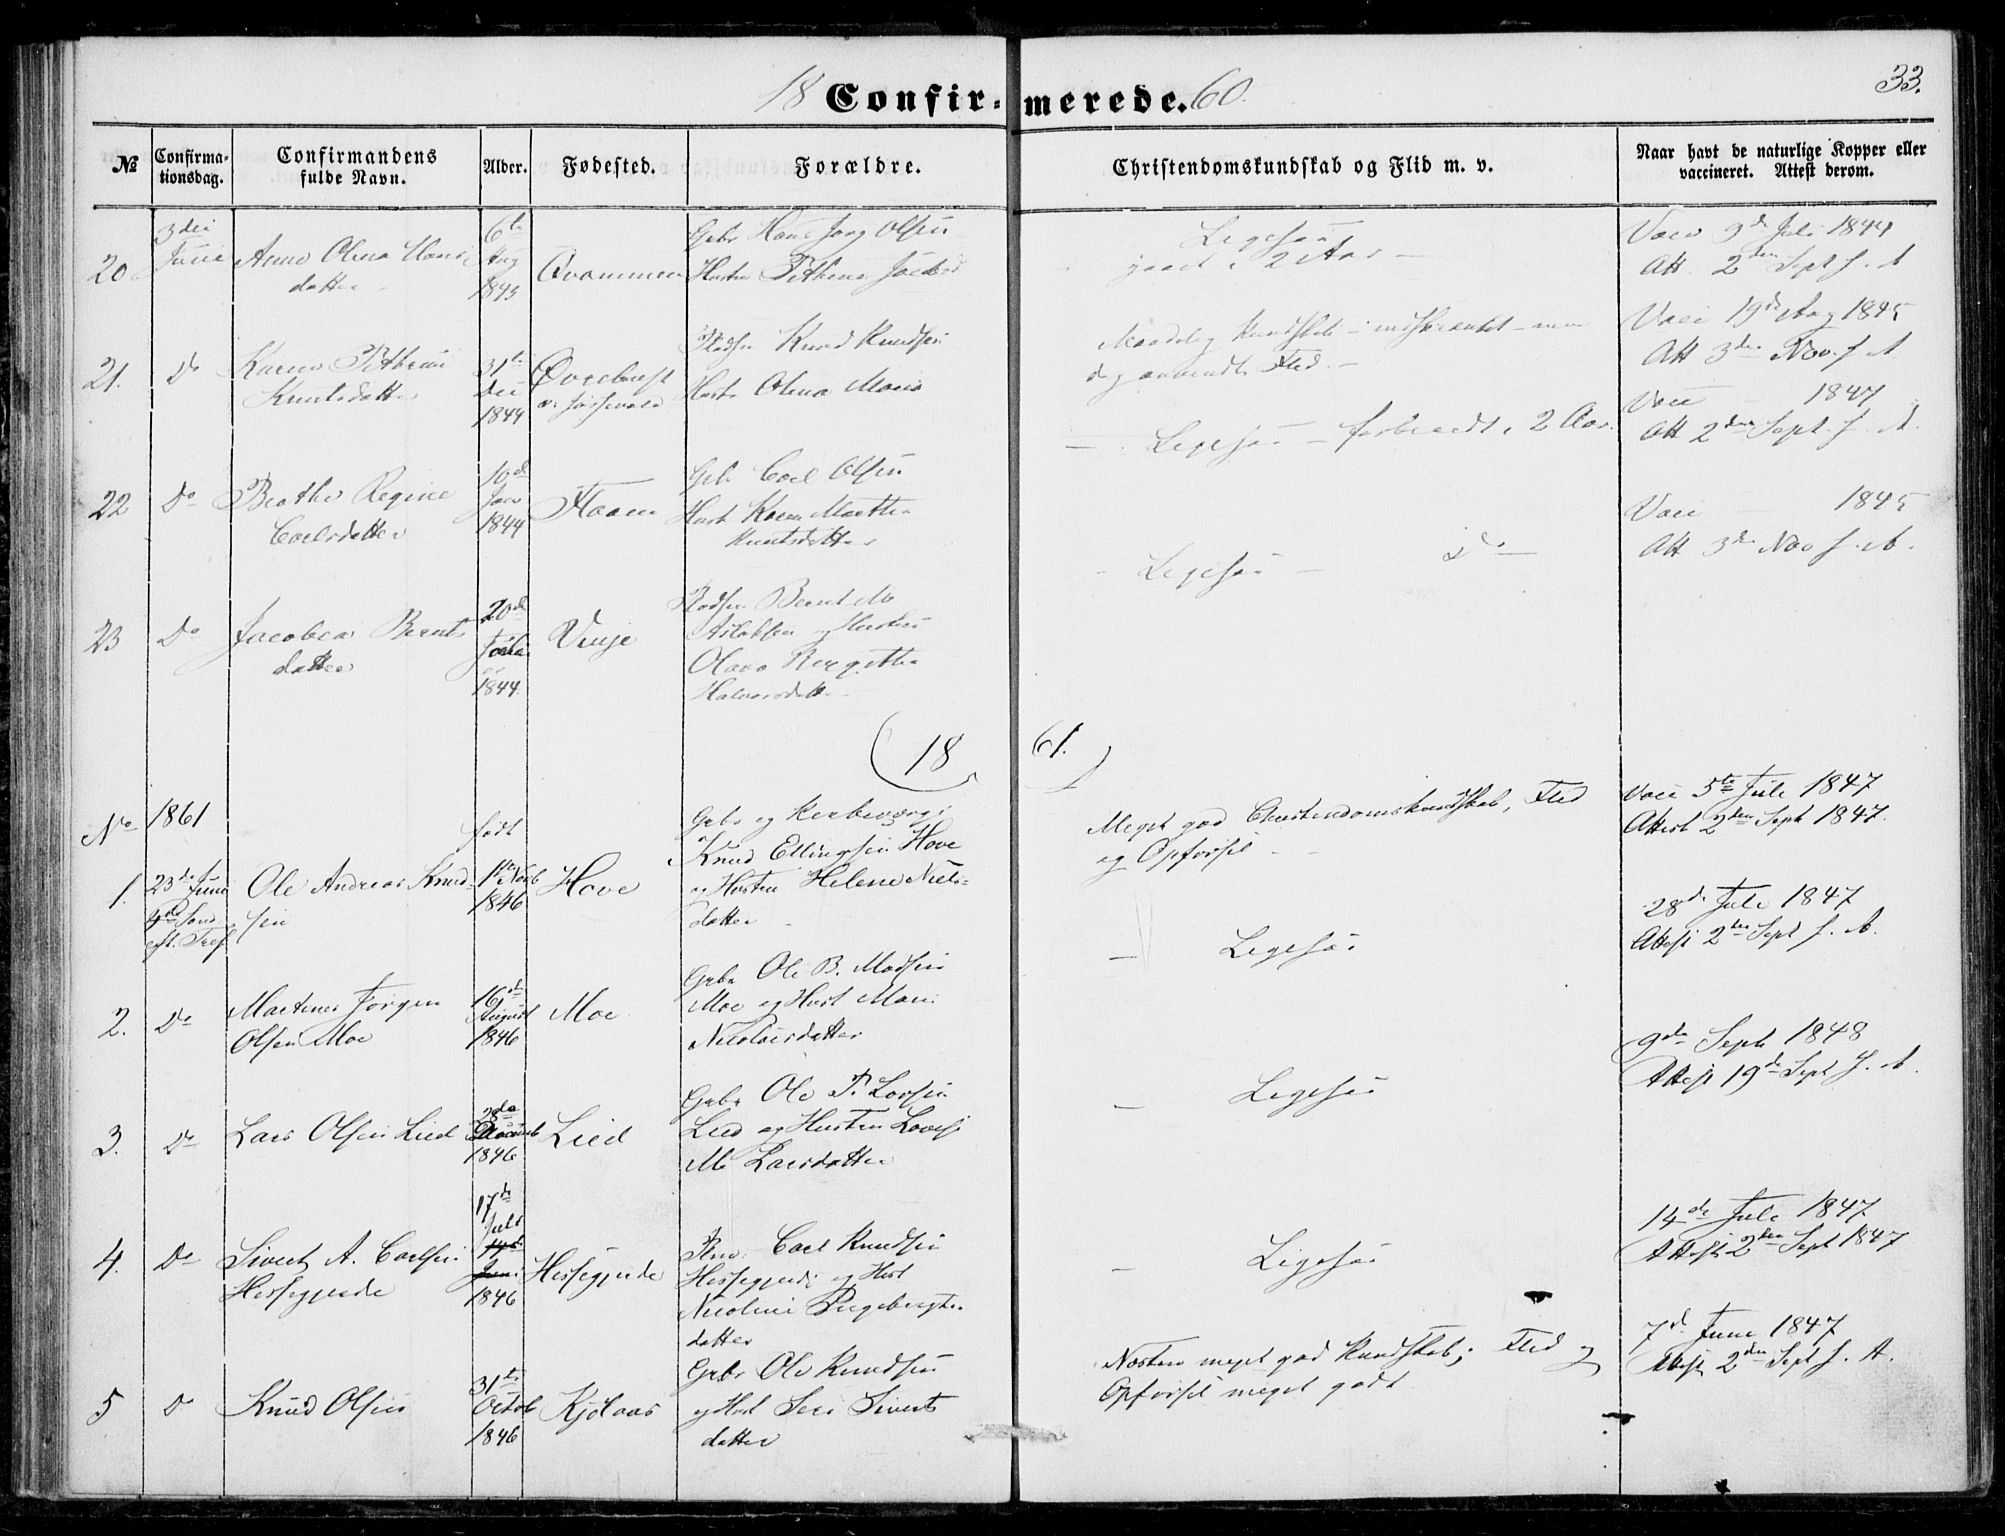 18 Confirmerede. 60.
33.
№
Confirmationsdag.
Confirmandens fulde Navn.
Alder.
Fødested.
Forældre.
Christendomskundskab og Flid m. v.
Naar havt de naturlige Kopper eller vaccineret. Attest derom.
20
3die
Junii
Anne Olina Hans
datter
6te
Aug
1845
Qvammen
Gbr Hans Jørg Olsen
Hustru
Ligesaa
2 Aar
Vacc 9de Juli 1844
Att. 2den Sept s. A
21.
Do
Karen
Knutsdatter
31te
Dec
1844
Plads Knud Knudsen
Hustr Olina Maria
Maadelig Kundskab
Vacc 19de Aug 1845
Att 3die Nov. s. A
22
Do
Beathe Regine
Carlsdatter
10de
Jan
1844
Gbr Carl Olsen
Hust Karen Marthe
Knutsdatter
Ligesaa 2 Aar.
Vacc 1847
Att 2den Sept. s. A.
23
Do
Jacobea Bernts
datter
20de
1844
Vinje
Bernt M
Aslaksen og Hustru
Olava Bergitta
Halvorsdatter
Ligesaa
Do
Vacc 1845
Att 3die Nov s. A.
(18
61.)
No
1861
født
1.
23de Juni
4de Sønd.
eft. Tref.
Ole Andreas Knud-
sen
1ste Novb
1846
Hove
Gbr og
Knud Ellingsen Hove
og Hustru Helene Niels-
datter
Meget god Christendomskundskab, Flid
og Opførsel
Vacc 5te Juli 1847
Attest 2den Sept 1847.
2.
Do
Martinus Jørgen
Olsen Moe
16de
August
1846
Moe
Gbr Ole B. Madsen
Moe og Hust Mari
Nicolaisdatter
Ligesaa
28de Juli 1847
Attest 2den Sept s. A.
3.
Do
Lars Olsen Lied
28de
1846
Lied
Gbr Ole P. Larsen
Lied og Hustru Lovise
M. Larsdatter
Ligesaa
9de Sept 1848
Attest 19de Sept s. A.
4.
Do
Sivert A. Carlsen
Hessegjerde
17de
Juli
14de
Juni
1846
Hessegjerde
Carl Knudsen
Hessegjerde og Hust
Nicoline Ingebrigts-
datter
Ligesaa
14de Juli 1847
Attest 2den Sept 1847
5
Do
Knud Olsen
31te
Octob
1846
Kjølaas
Gbr Ole Knudsen
og Hust Seri Siverts
datter
Næsten meget god Kundskab; Flid og
Opførsel meget godt
7de Juni 1847
Attest 2den Sept s. A.